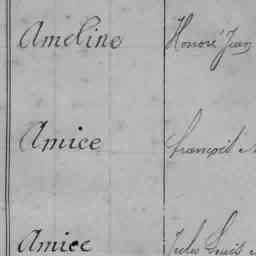 Ameline Honoré Jean
Amice François
Amice Jules Louis